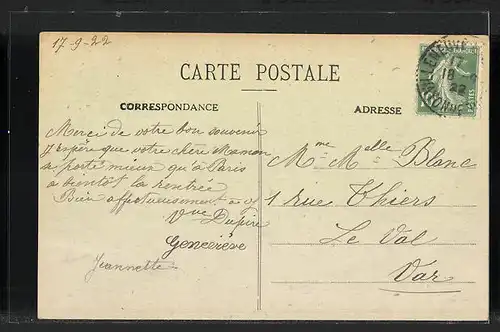 17-9-22
CARTE POSTALE
CORRESPONDANCE
ADRESSE
Merci de votre bon souvenir
j'espère que votre chère Maman
se porte mieux qu'à Paris
à bientôt la rentrée
Bien affectueusement à
Vve Dupire
Geneviève
Jeannette
Mme Malle Blanc
1 rue Thiers
Le Val
Var
17
18
22
YONNE